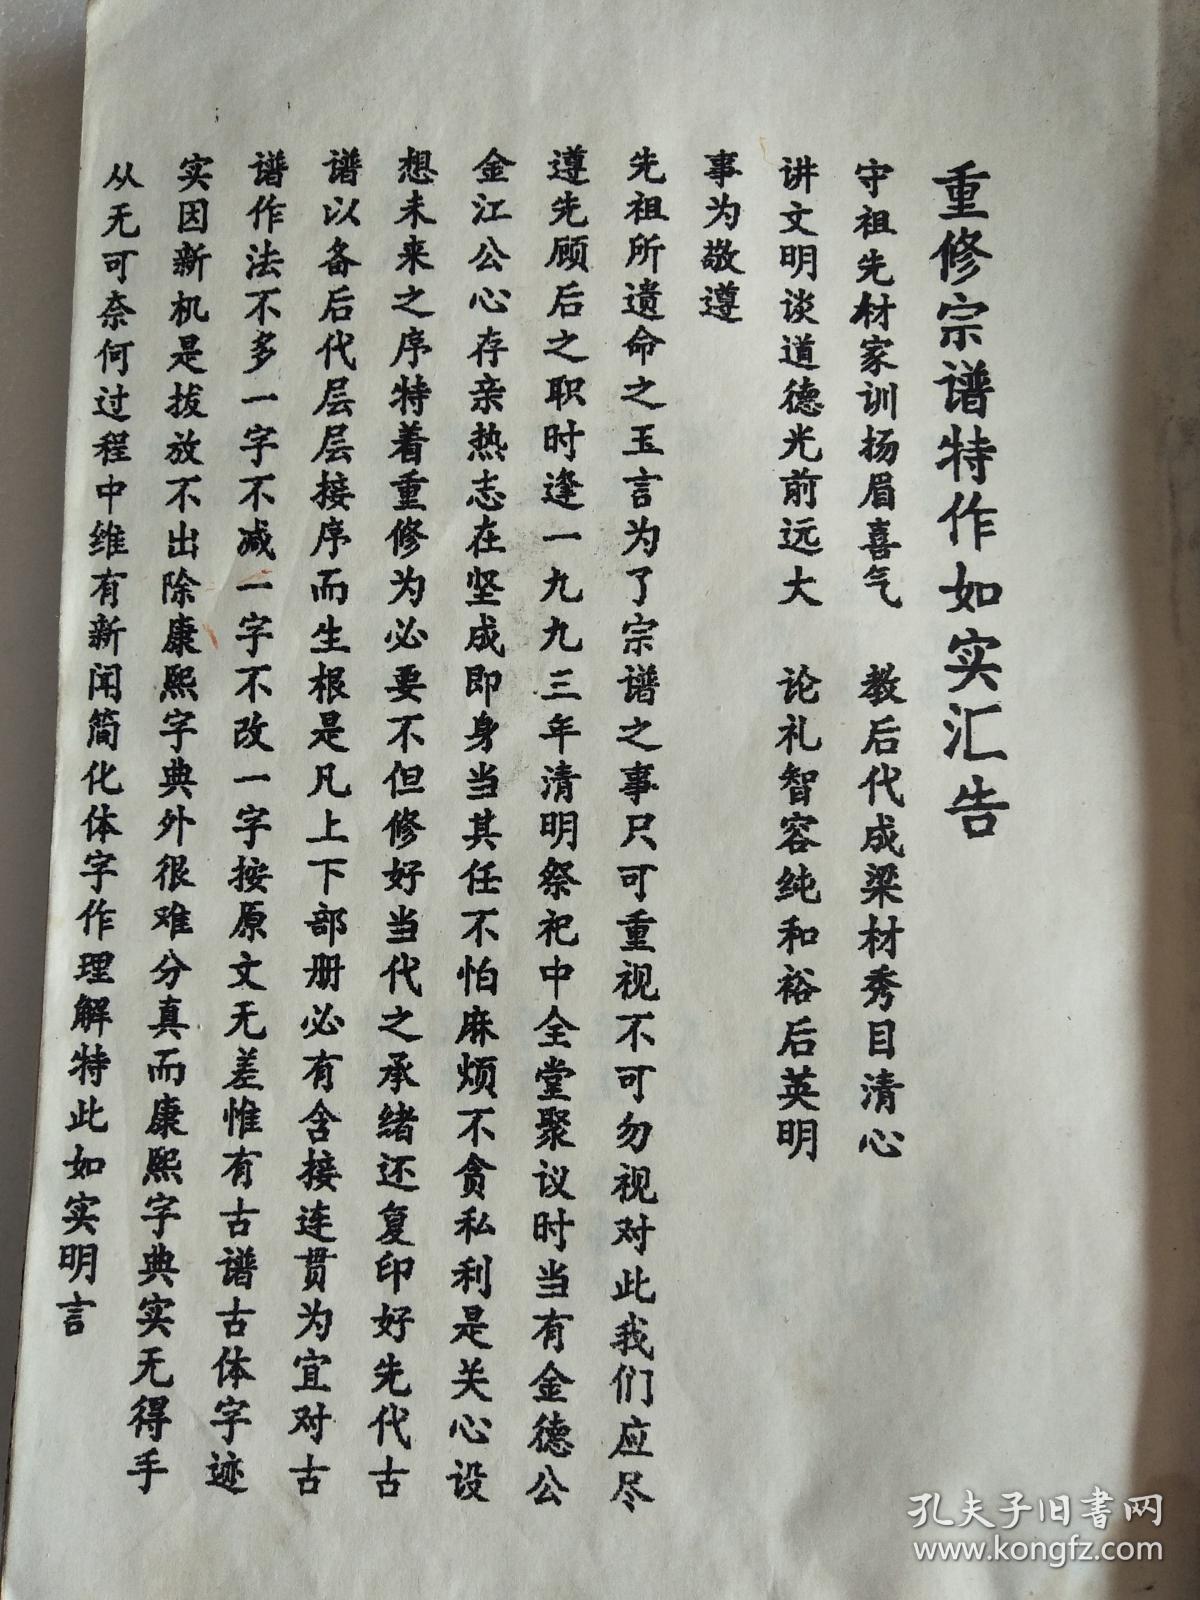 重修宗谱特作如实汇告
守祖先材家训扬眉喜气 教后代成梁材秀目清心
讲文明谈道德光前远大 论礼智容纯和裕后英明
事为敬遵
先祖所遗命之玉言为了宗谱之事只可重视不可勿视对此我们应尽
遵先顾后之职时逢一九九三年清明祭祀中全堂聚议时当有金德公
金江公心存亲热志在坚成即身当其任不怕麻烦不贪私利是关心设
想未来之序特着重修为必要不但修好当代之承绪还复印好先代古
谱以备后代层层接序而生根是凡上下部册必有含接连贯为宜对古
谱作法不多一字不减一字不改一字按原文无差惟有古谱古体字迹
实因新机是拔放不出除康熙字典外很难分真而康熙字典实无得手
从无可奈何过程中维有新闻简化体字作理解特此如实明言
孔夫子旧书网
www.kongfz.com